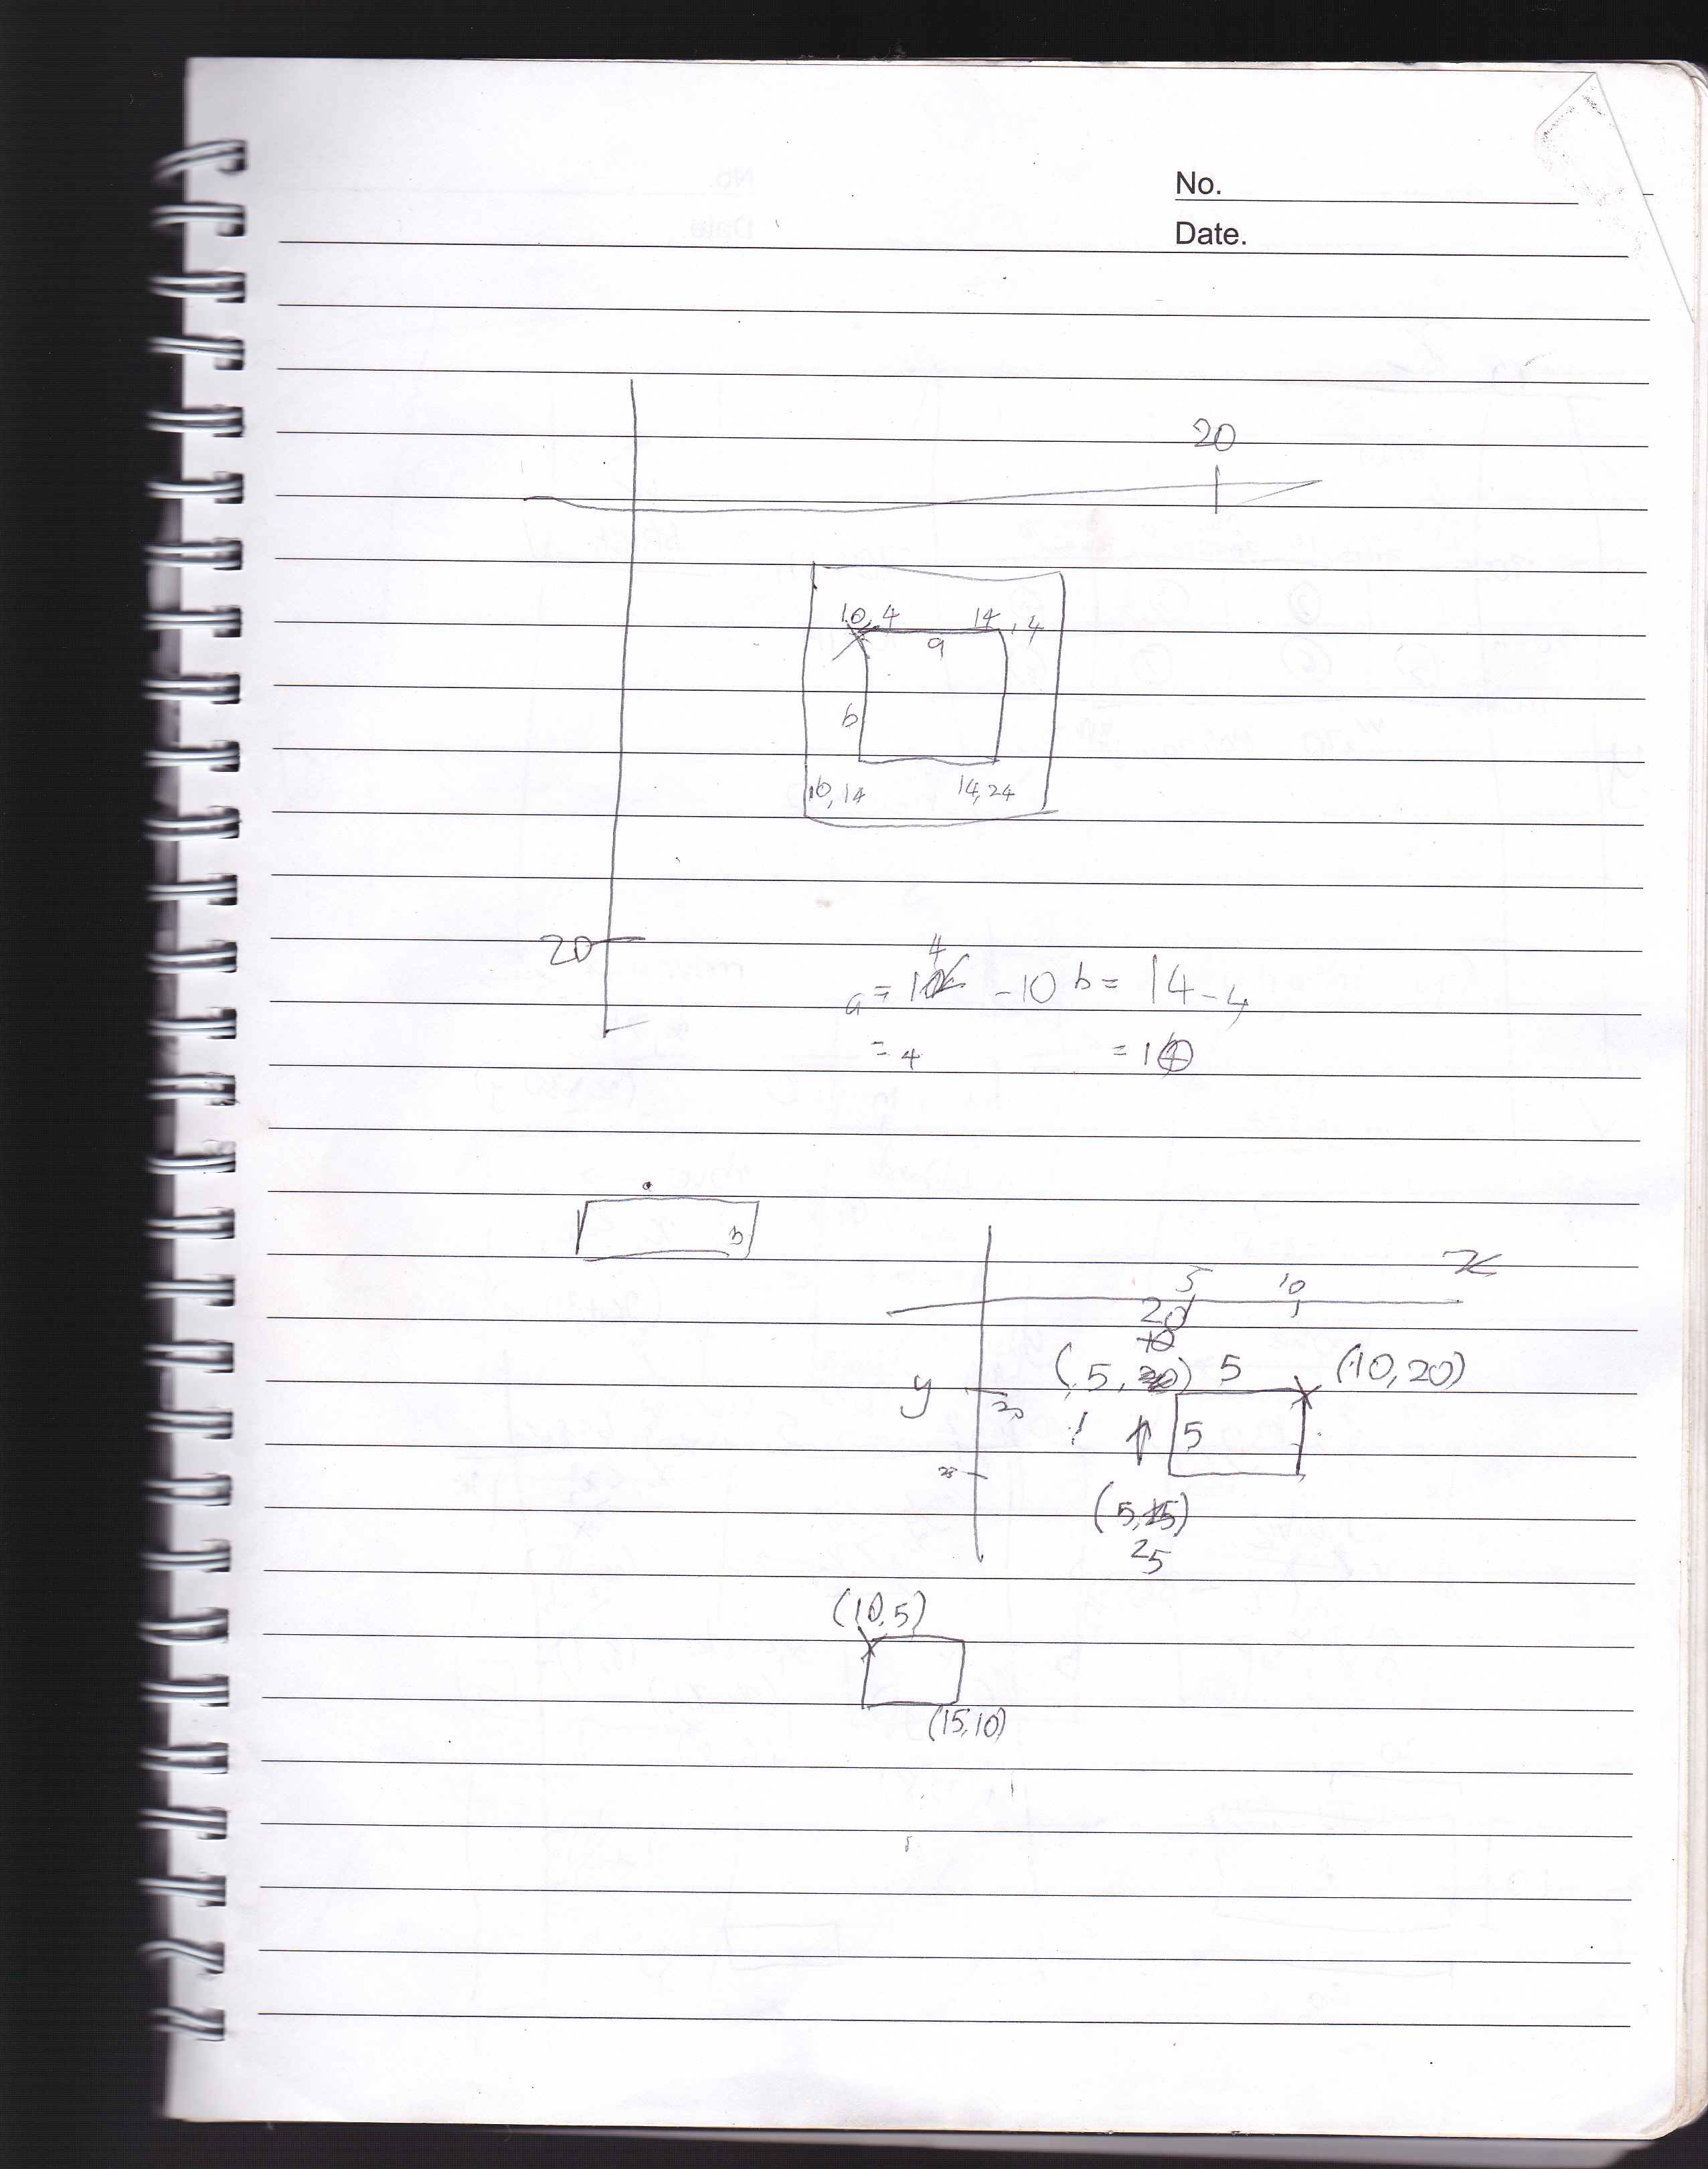 No.
Date.
20
10,4 14,4
a
b
10,14 14,24
20
4
a = 1 -10 b = 14-4
= 4 = 10
b
x
5 10
20
10
(5, ) 5 (10,20)
y
20
5
25
(5, 5)
25
(10,5)
(15,10)